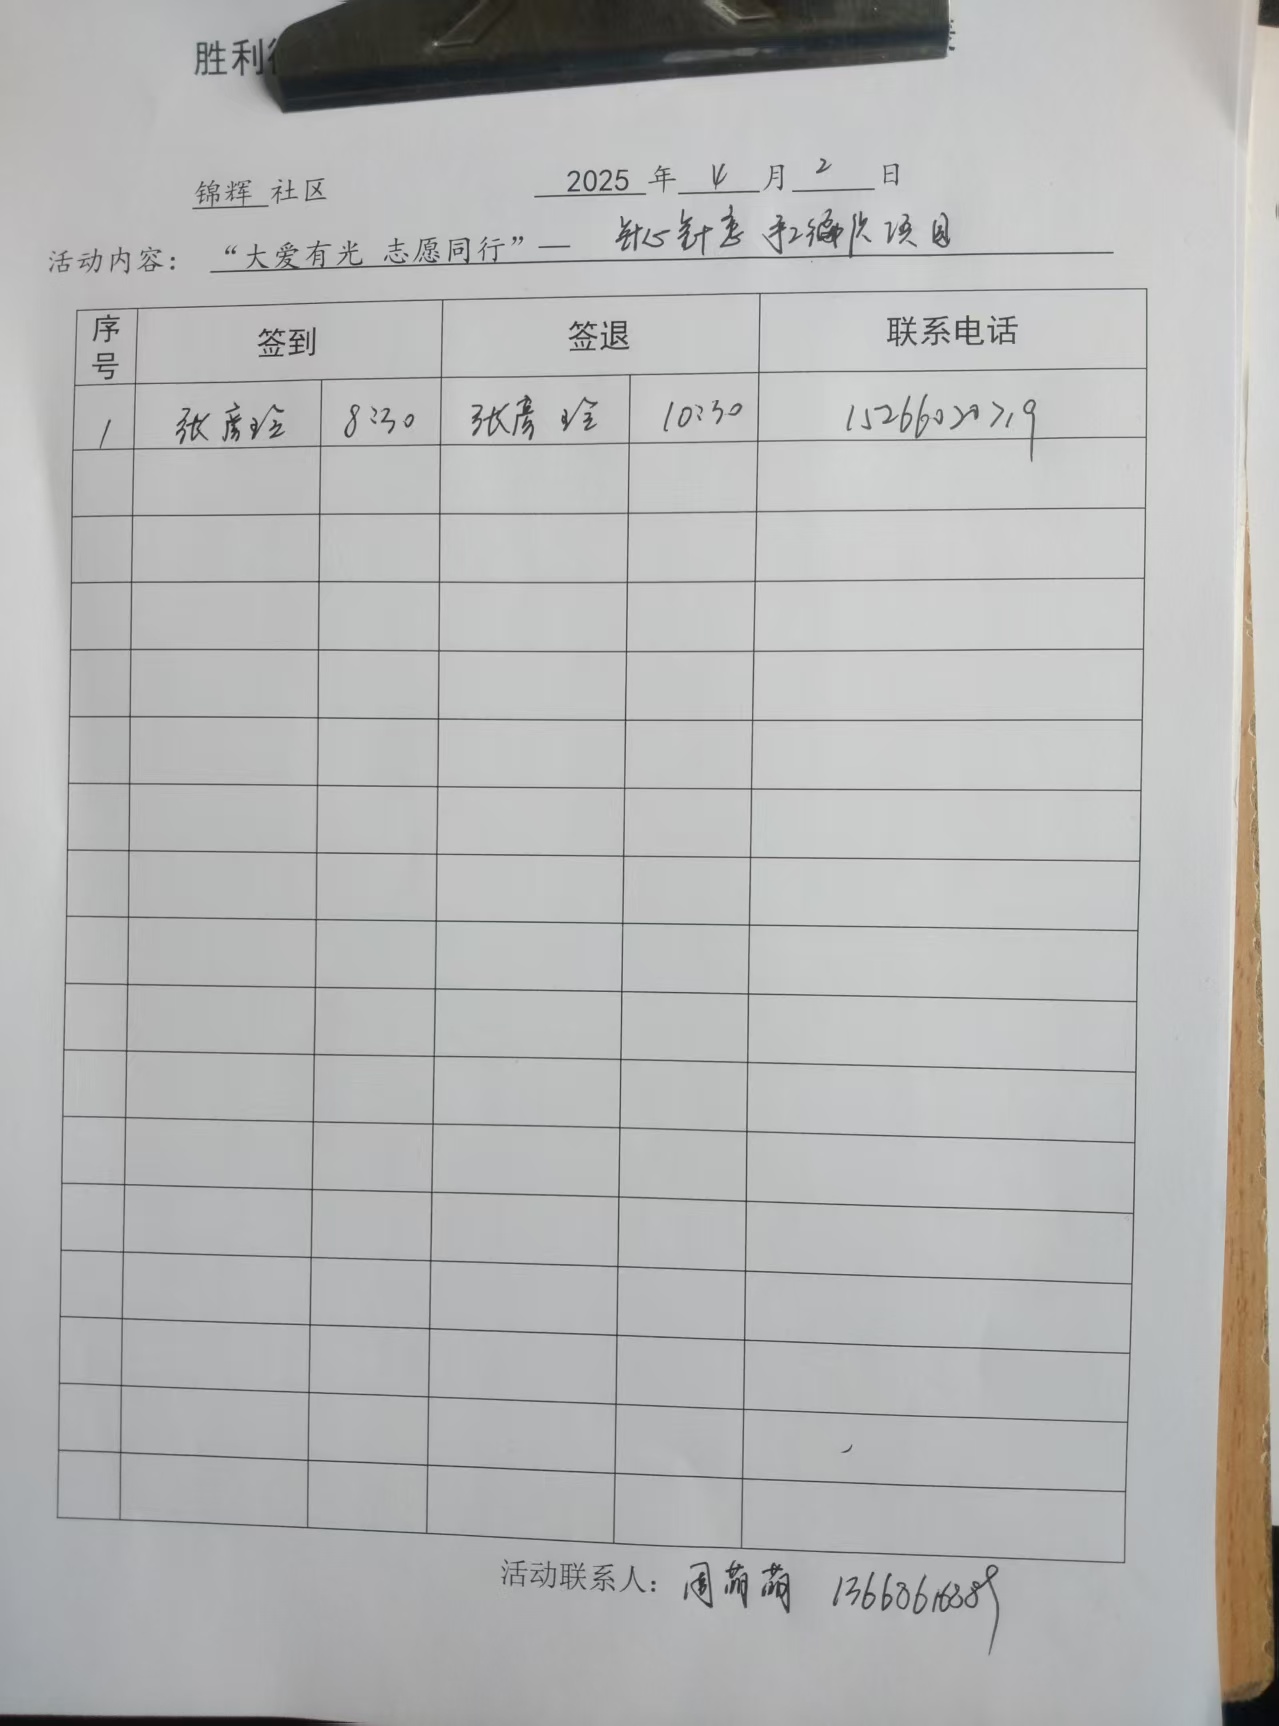 胜利
锦辉 社区 2025 年 4 月 2 日
活动内容： “大爱有光 志愿同行”— 针心针意 手工编织 项目
序号 签到 签退 联系电话
1 张彦玲 8:30 张彦玲 10:30 15266020719
活动联系人： 周萌萌